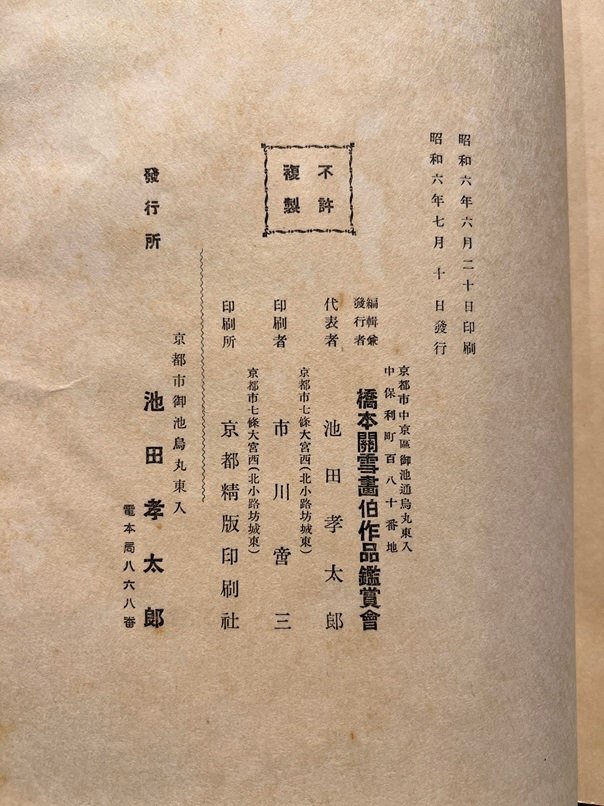 昭和六年六月二十日印刷
昭和六年七月十日發行
不許
複製
京都市中京區御池通烏丸東入
中保利町百八十番地
編輯兼
發行者
橋本關雪畫伯作品鑑賞會
代表者 池田孝太郎
京都市七條大宮西(北小路坊城東)
印刷者 市川啻三
京都市七條大宮西(北小路坊城東)
印刷所 京都精版印刷社
發行所
京都市御池烏丸東入
池田孝太郎
電本局八六八番